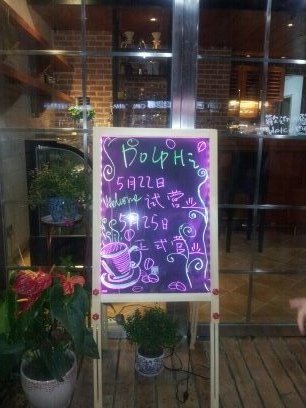 5月22日
Welcome 试营业
5月25日
正式营业